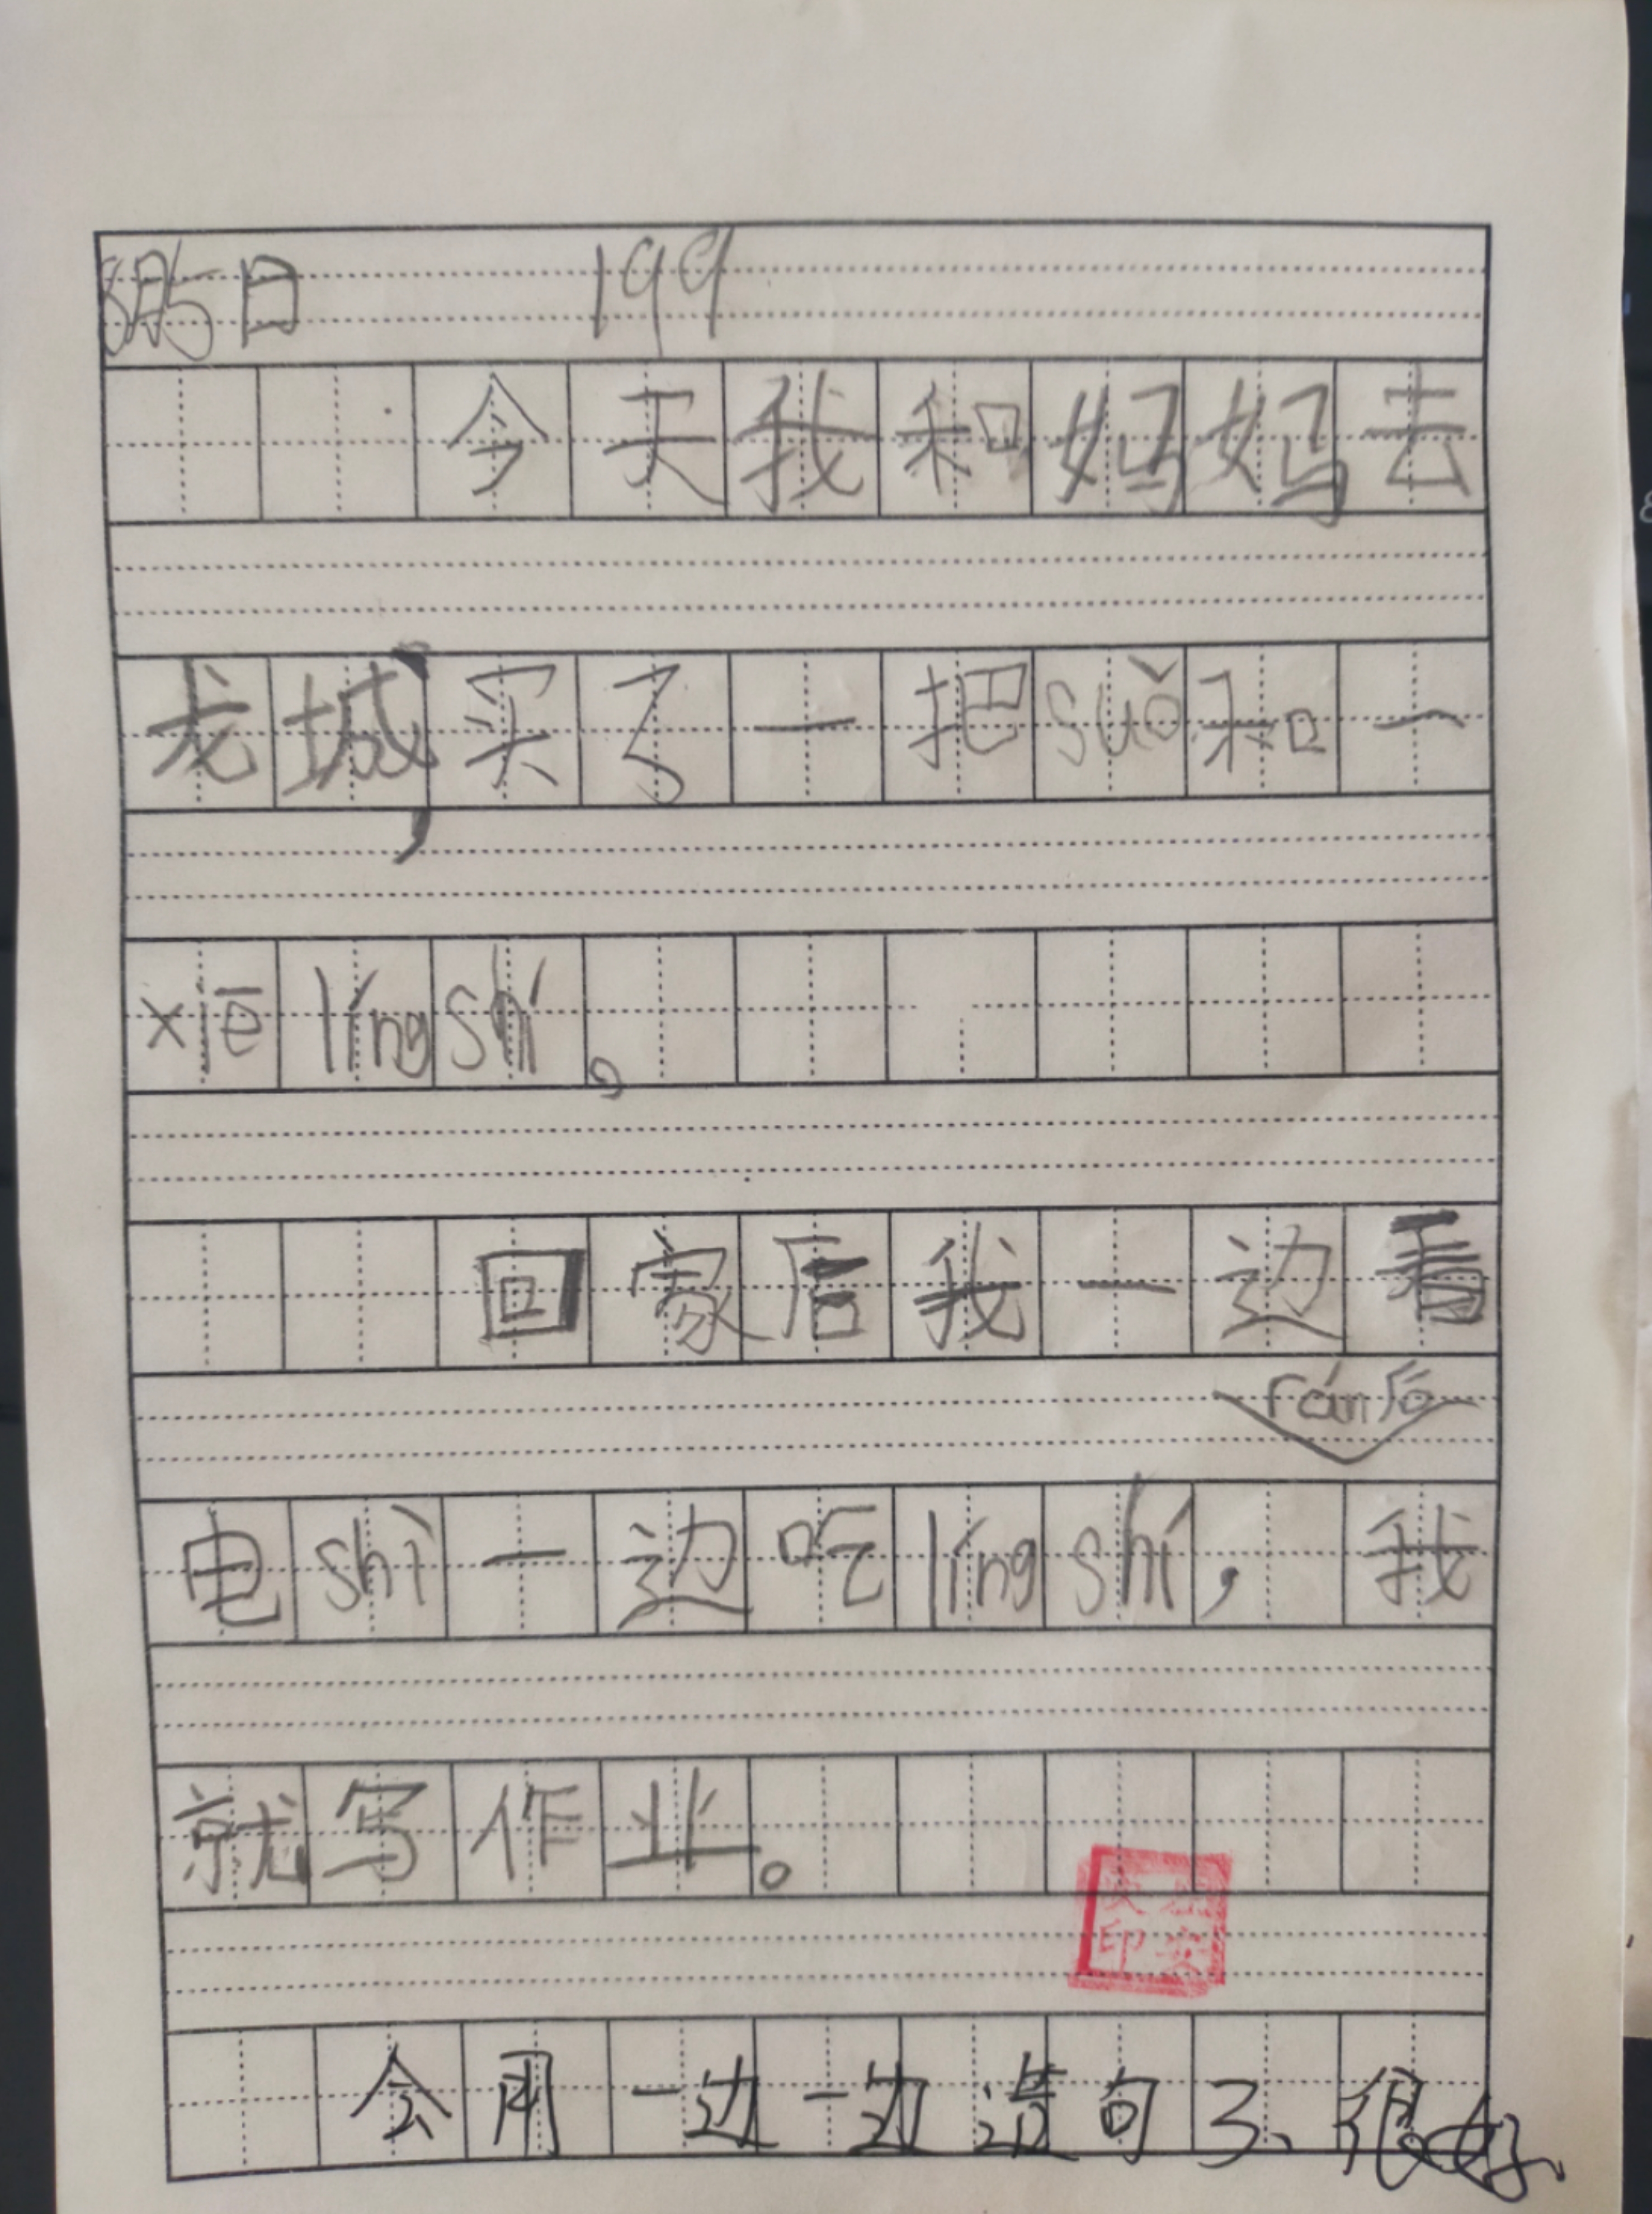 8月5日 199
今天我和妈妈去
龙城,买了一把suǒ和一
xiē líng shí。
回家后我一边看
rán后
电shì一边吃líng shí,我
就写作业。
会用一边一边造句了、很好